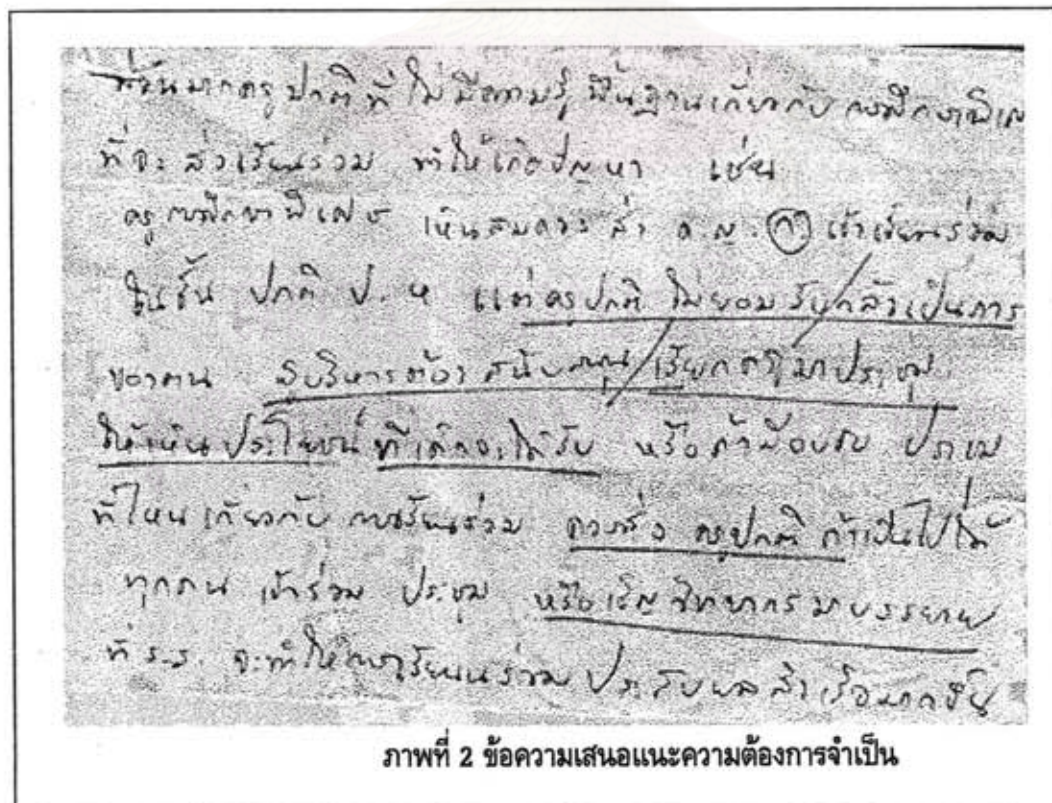 ที่ส่วนมากครูปกติที่ไม่มีความรู้พื้นฐานเกี่ยวกับการศึกษาพิเศษ
ที่จะส่งเรียนร่วม ทำให้เกิดปัญหา เช่น
ครูการศึกษาพิเศษ เห็นสมควรส่ง ด.ญ. ก เข้าเรียนร่วม
ในชั้น ปกติ ป.๒ แต่ครูปกติ ไม่ยอมรับกลัวเป็นภาระ
ของตน ผู้บริหารต้องสนับสนุน เรียกครูมาประชุม
ให้เห็นประโยชน์ ที่เด็กจะได้รับ หรือถ้ามีอบรม
ที่ไหน เกี่ยวกับ การเรียนร่วม ควรส่ง ครูปกติ ถ้าเป็นไปได้
ทุกคน เข้าร่วม ประชุม หรือเชิญวิทยากรมาบรรยาย
ที่ ร.ร. จะทำให้การเรียนร่วม ประสบผลสำเร็จมากขึ้น
ภาพที่ 2 ข้อความเสนอแนะความต้องการจำเป็น